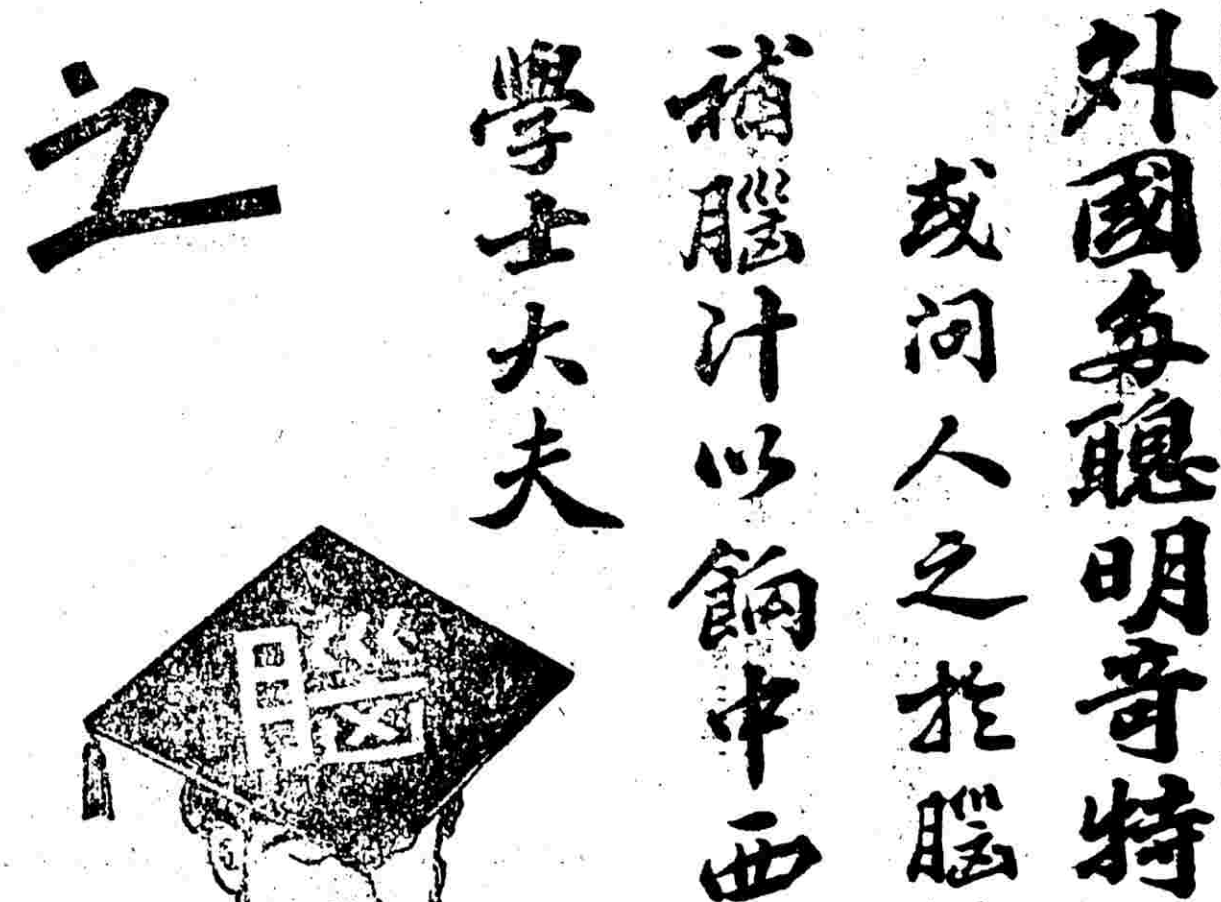 外國每聰明奇特
或問人之於腦
補腦汁以餉中西
學士大夫
之
腦